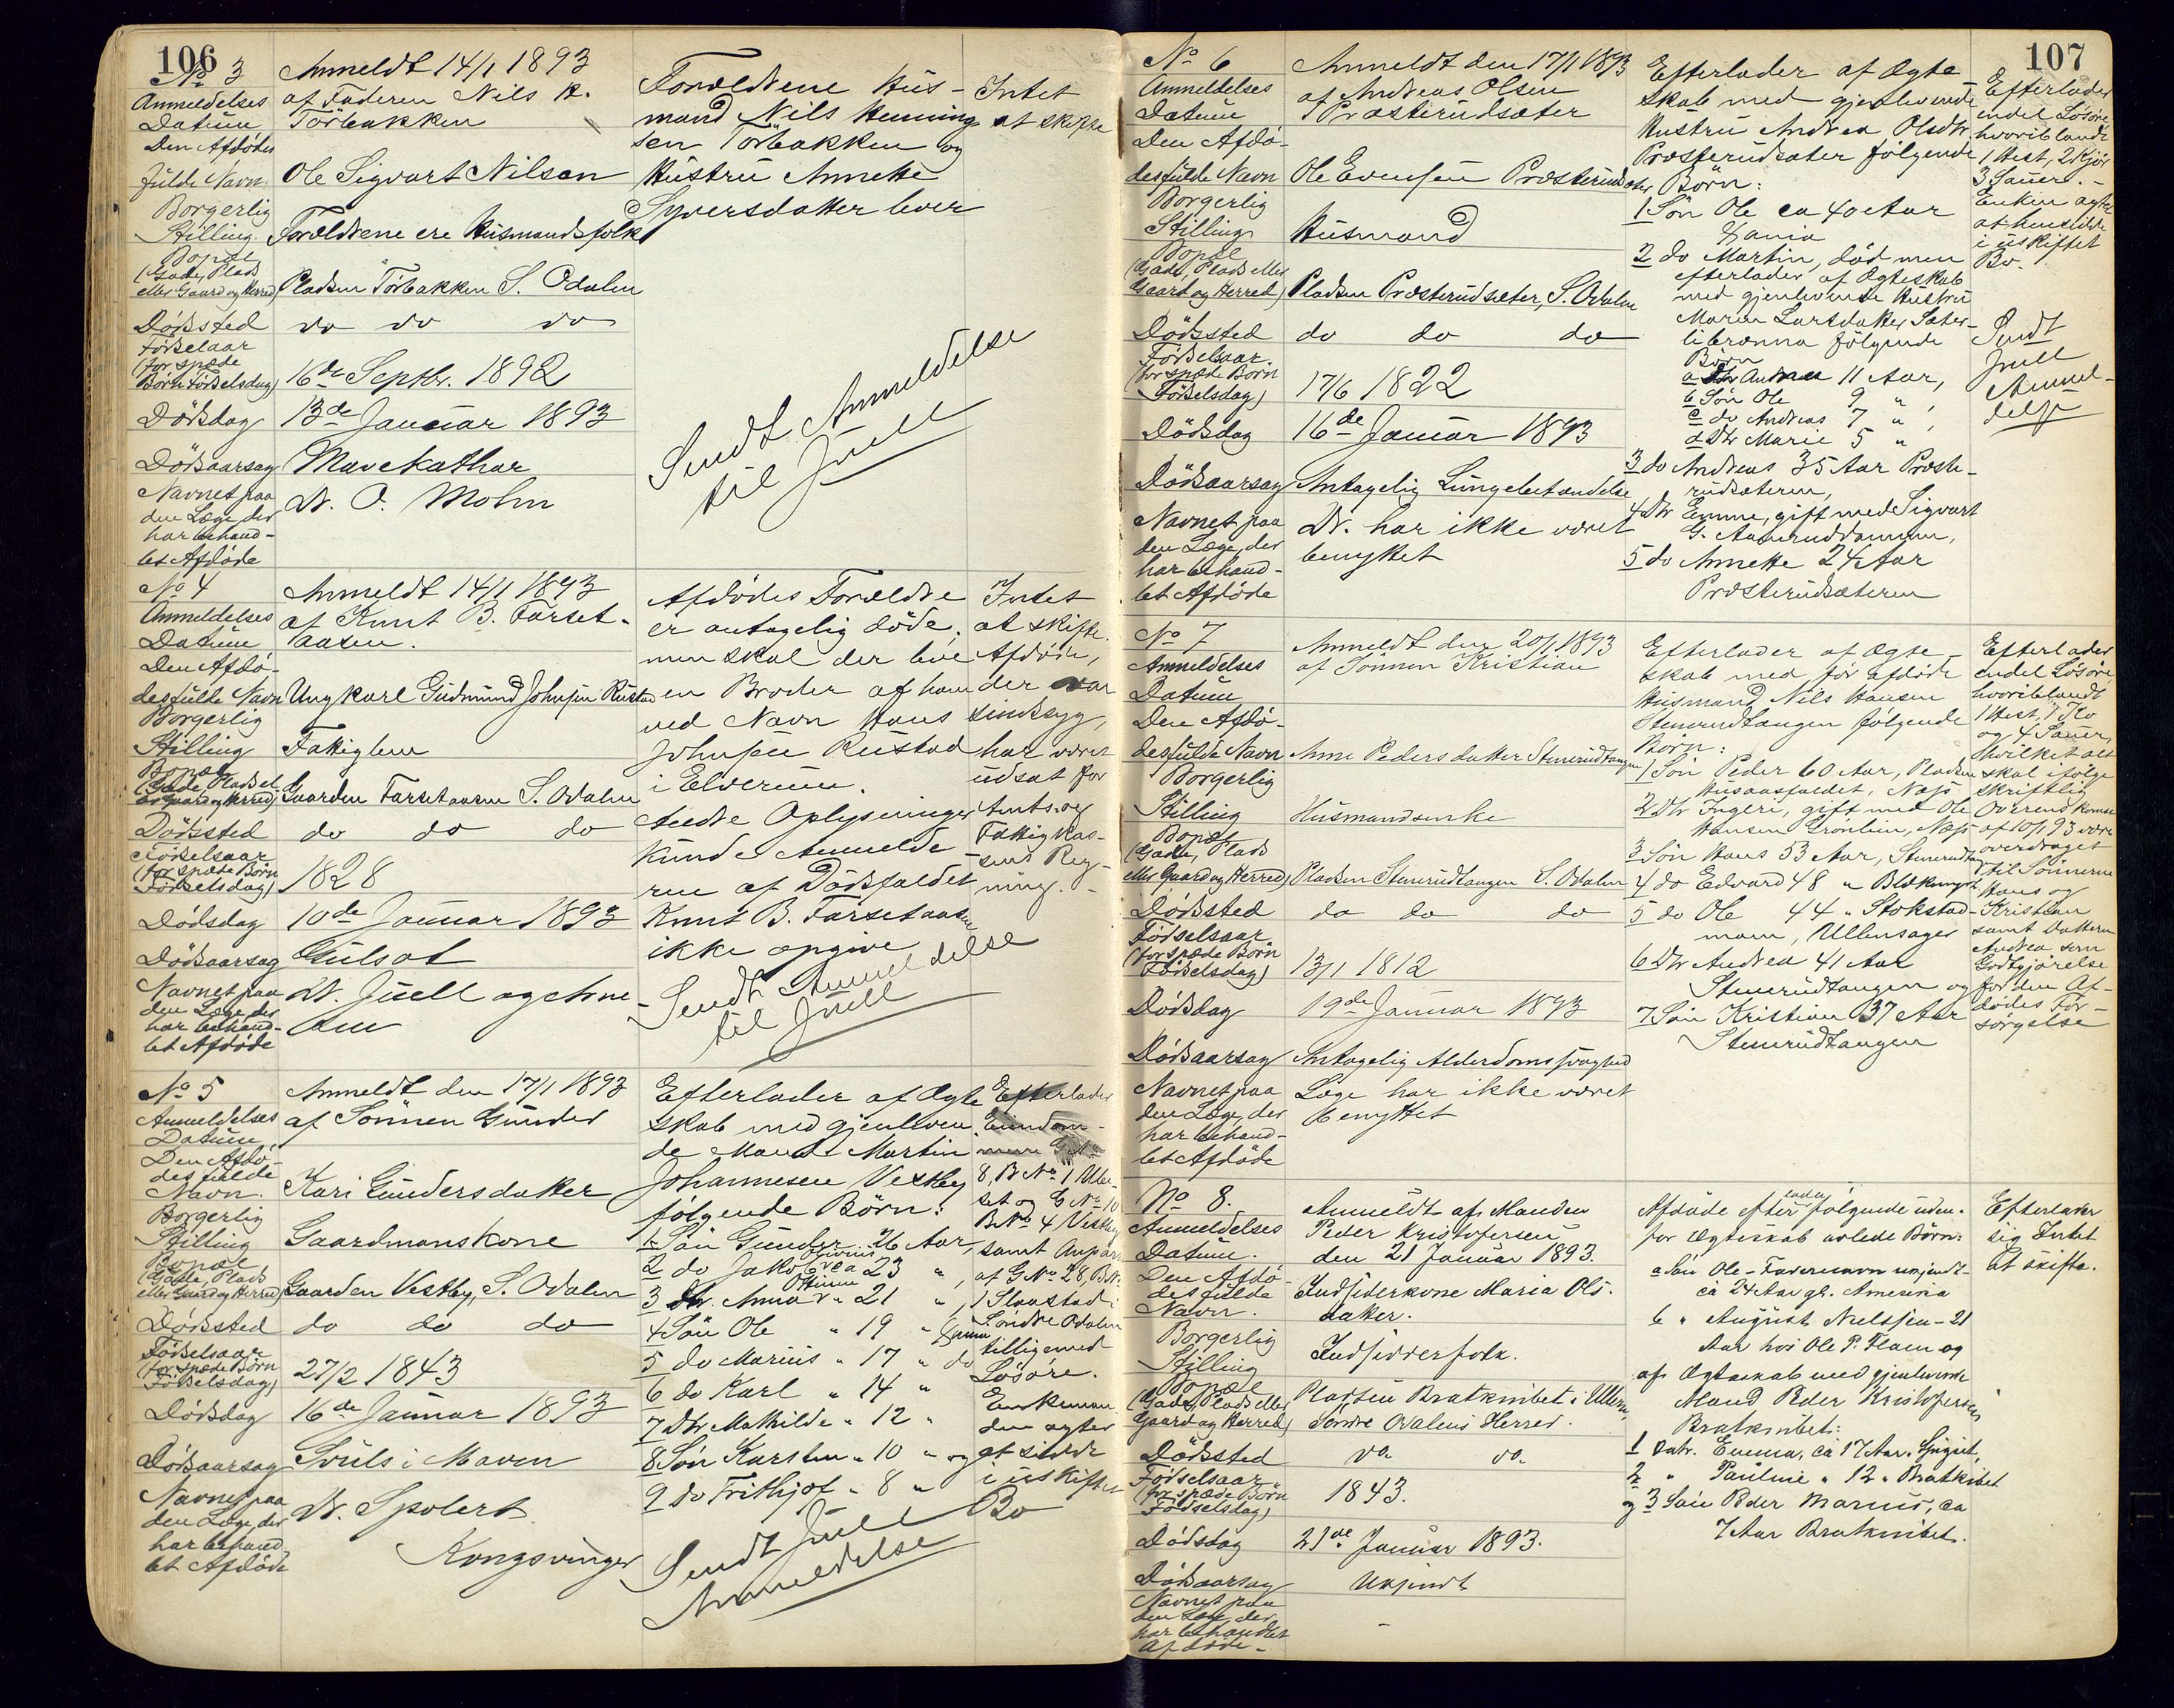 106
No 3
Anmeldt 14/1 1893
Anmeldelses
af Faderen Nils H.
Datum
Törbakken
Den Afdödes
fulde Navn
Ole Sigvart Nilsen
Borgerlig
Stilling
Forældrene ere Husmandsfolk
Bopæl
(Gade, Plads
eller Gaard og Herred)
Pladsen Törbakken S. Odalen
Dödssted
do do do
Födselaar
(for spæde
Börn Födselsdag)
16de Septbr. 1892
Dödsdag
13de Januar 1893
Dödsaarsag
Mavekathar
Navnet paa
den Læge, der
har behand-
let Afdöde
Dr. O. Mohn
Forældrene Hus-
mand Nils Henning
sen Törbakken og
Hustru Annette
Syversdatter lever
Intet
at skifte
Sendt Anmeldelse
til Juell
No 4
Anmeldt 14/1 1893
Anmeldelses
af Knut B. Farset-
Datum
aasen.
Den Afdö-
des fulde Navn
Ungkarl Gudmund Johnsen Rustad
Borgerlig
Stilling
Fattiglem
Bopæl
(Gade, Plads el-
ler Gaard og Herred)
Gaarden Farsetaasen S. Odalen
Dödssted
do do do
Födselaar
(for spæde Börn
Födselsdag)
1828
Dödsdag
10de Januar 1893
Dödsaarsag
Gulsot
Navnet paa
den Læge, der
har behand-
let Afdöde
Dr. Juell og
Afdödes Forældre
er antagelig döde,
men skal der leve
en Broder af ham
ved Navn Hans
Johnsen Rustad
i Elverum.
Andre Oplysninger
kunde Anmelde-
ren af Dödsfaldet
Knut B. Farsetaasen
ikke opgive
Intet
at skifte.
Afdöde,
der var
sindssyg,
har været
udsat for
Amts og
Fattigkas-
sens Reg-
ning.-
Sendt Anmeldelse
til Juell
No 5
Anmeldt den 17/1 1893
Anmeldelses
af Sönnen Gunder
Datum
Den Afdö-
des fulde
Navn.
Kari Gundersdatter
Borgerlig
Stilling
Gaardmanskone
Bopæl
(Gade, Plads
eller Gaard og Herred)
Gaarden Vestby, S. Odalen
Dödssted
do do do
Födselaar
(for spæde Börn
Födselsdag)
27/2 1843
Dödsdag
16de Januar 1893
Dödsaarsag
Svuls i Maven
Navnet paa
den Læge, der
har behand-
let Afdöde
Dr. Spolert
Kongsvinger
Efterlader af Ægte
skab med gjenleven-
de Mand Martin
Johannesen Vestby
fölgende Börn:
1 Sön Gunder 26 Aar,
2 do Jakob ca 23 "
3 Dtr. Anna " 21 "
4 Sön Ole " 19 "
5 do Marius " 17 " do
6 do Karl " 14 "
7 Dtr Mathilde " 12 "
8 Sön Karsten " 10 " og
9 do Frithjof " 8 "
Efterlader
Eiendom-
mene G. No
8, B No 1 Uller-
set og G No 10
B No 4 Vestby
samt Anpart
af G No 28, B No
1 Slaastad i
Söndre Odalen
tilligemed
Lösöre.
Enkeman
den agter
at sidde
i uskiftet
Bo
Sendt Juell
Anmeldelse
107
No 6
Anmeldt den 17/1 1893
Anmeldelses
af Andreas Olsen
Datum
Præsterudsæter
Den Afdö-
des fulde Navn
Ole Evensen Præsterudsæter
Borgerlig
Stilling
Husmand
Bopæl
(Gade, Plads eller
Gaard og Herred)
Pladsen Præsterudsæter, S. Odalen
Dödssted
do do do
Födselsaar
(for spæde Börn
Födselsdag)
17/6 1822
Dödsdag
16de Januar 1893
Dödsaarsag
Antagelig Lungebetændelse
Navnet paa
den Læge, der
har behand-
let Afdöde
Dr. har ikke været
benyttet
Efterlader af Ægte-
skab med gjenlevende
Hustru Andrea Olsdtr.
Præsterudsæter fölgende
Börn:
1 Sön Ole ca 40 Aar
2 do Martin, död men
efterlader af Ægteskab
med gjenlevende Hustru
Maren Larsdatter Sæter-
librænna fölgende
Börn
a Dtr Andrea 11 Aar,
b Sön Ole 9 "
c do Andreas 7 "
d Dtr Marie 5 "
3 do Andreas 35 Aar Præste-
rudsæteren,
4 Dtr Emma, gift med Sigvart
G.
5 do Annette 24 Aar
Præsterudsæteren
Efterlader
endel Lösöre
hvoriblandt
1 Hest, 2 Kjör
3 Sauer.-
Enken agter
at hensidde
i uskiftet
Bo.
Sendt
Juell
Anmel-
delse
No 7
Anmeldt den 20/1 1893
Anmeldelses
af Sönnen Kristian
Datum
Den Afdö-
des fulde Navn
Anne Pedersdatter Stenerudtangen
Borgerlig
Stilling
Husmandsenke
Bopæl
(Gade, Plads
eller Gaard og Herred)
Pladsen Stenerudtangen S. Odalen
Dödssted
do do do
Födselsaar
(for spæde Börn
Födselsdag)
13/1 1812
Dödsdag
19de Januar 1893
Dödsaarsag
Antagelig Alderdomssvaghed
Navnet paa
den Læge, der
har behand-
let Afdöde
Læge har ikke været
benyttet
Efterlader af Ægte-
skab med för afdöde
Husmand Nils Hansen
Stenerudtangen fölgende
Börn:
1 Sön Peder 60 Aar, Pladsen
Husaasfaldet, Næs
2 Dtr Ingeri, gift med Ole
Hansen Grönlien, Næs
3 Sön Hans 53 Aar, Stenerudtangen
4 do Edvard 48 "
5 do Ole 44 " Stokstad-
moen, Ullensager
6 Dtr Andrea 41 Aar
Stenerudtangen og
7 Sön Kristian 37 Aar
Stenerudtangen
Efterlader
endel Lösöre,
hvoriblandt
1 Hest, 1 Ko
og 4 Sauer,
hvilket alt
skal ifölge
skriftlig
Overenskomst
af 10/1 93 være
overdraget
til Sönnerne
Hans og
Kristian
samt Datteren
Andrea som
Godtgjörelse
for den Af-
dödes For-
sörgelse
No 8.
Anmeldt af Manden
Anmeldelses
Peder Kristofersen
Datum.
den 21 Januar 1893.
Den Afdö-
des fulde
Navn.
Indsiderkone Maria Ols-
datter.
Borgerlig
Stilling
Indsidderfolk.
Bopæl
(Gade, Plads eller
Gaard og Herred)
Pladsen Bratknibet i Ullern,
Söndre Odalens Herred.
Dödssted
do. do.
Födselsaar
(for spæde Börn
Födselsdag)
1843.
Dödsdag
21de Januar 1893.
Dödsaarsag
Ukjendt
Navnet paa
den Læge, der
har behandlet
Afdöde.
-
Afdöde efterlader fölgende uden-
for Ægteskab avlede Börn:
a Sön Ole - Farernavn ukjendt-
ca 24 Aar gl. Amerika
b " August Nielsen - 21
Aar hos Ole P. Flaen og
af Ægteskab med gjenlevende
Mand Peder Kristofersen
Bratknibet:
1 Datr. Emma, ca 17 Aar.
2 " Pauline " 12 " Bratknibet
og 3 Sön Peder Marius, ca
7 Aar Bratknibet.
Efterlader
sig Intet
at skifte.